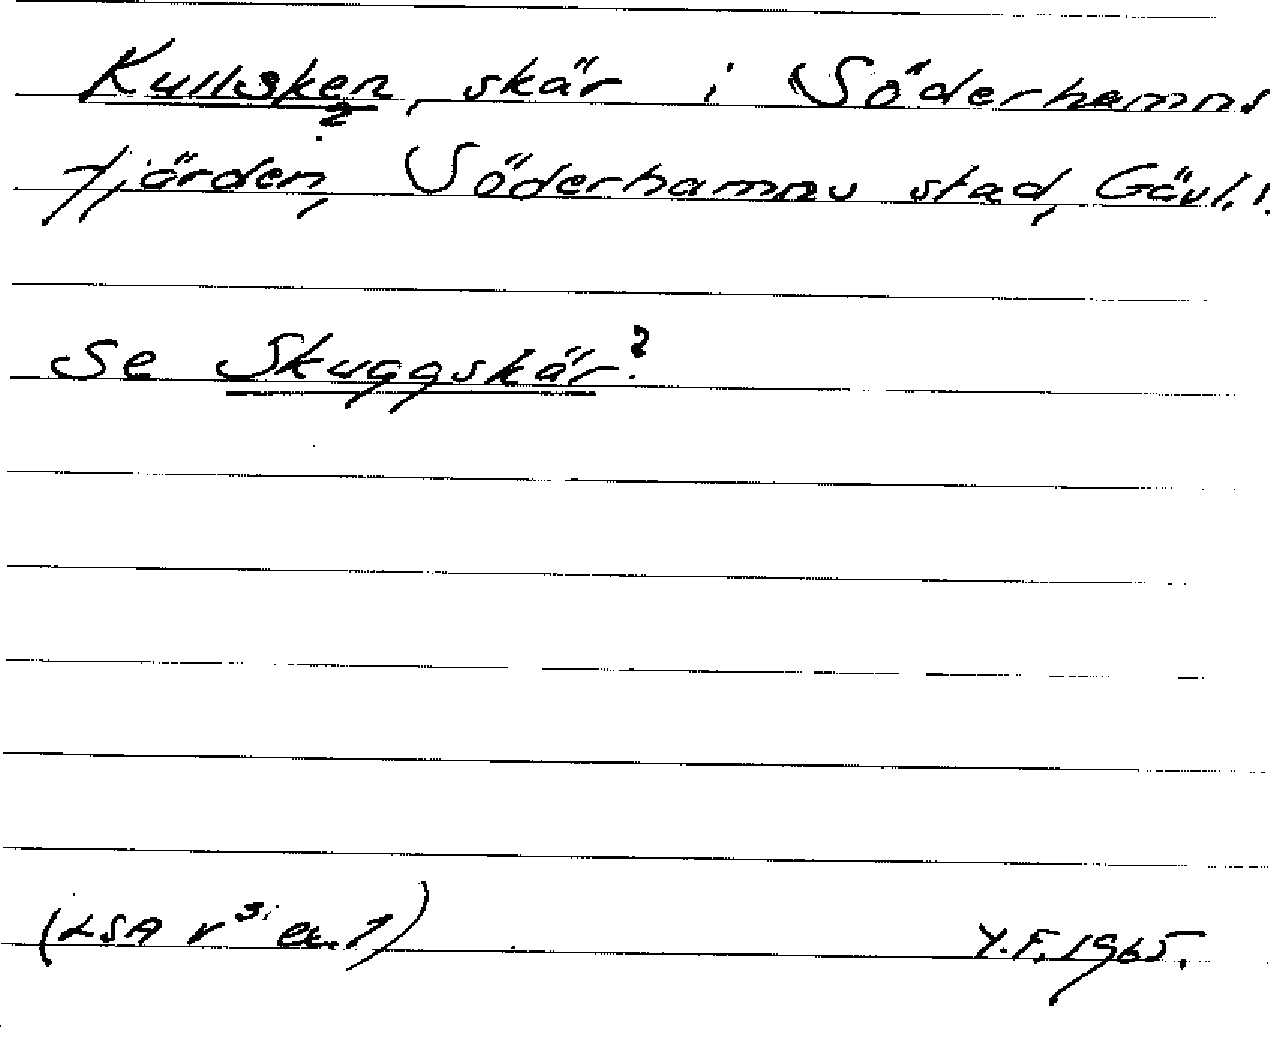 Kullsken, skär i Söderhamns
?
fjärden, Söderhamns stad, Gävl. l.
Se Skuggskär?
(LSA r³: ex. 1)
Y.F. 1965.